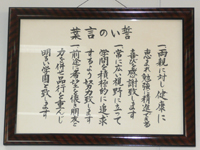 誓いの言葉
一、両親に対し健康に
恵まれ勉強に精進できる
喜びを感謝致します
一、常に広い視野に立って
学問を積極的に追求
するよう努力致します
一、前途に希望を
力を併せ品行を重んじ
明るい学園と致します